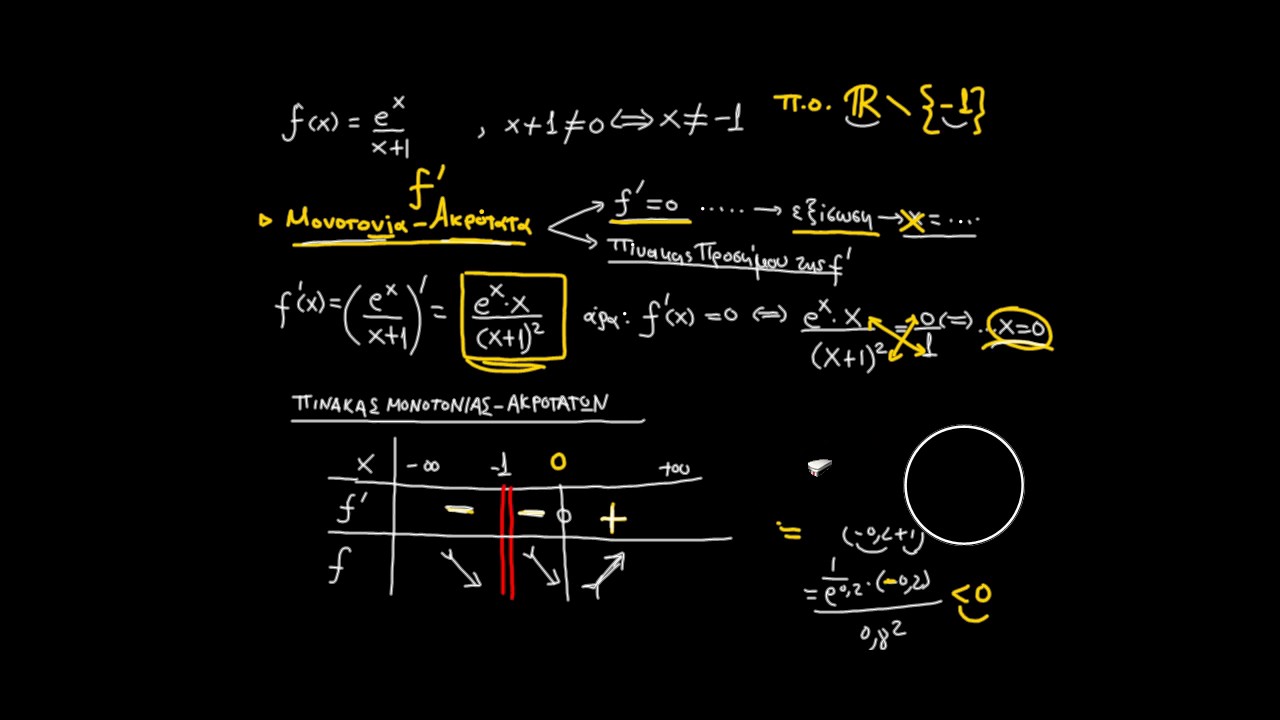 f(x) = e^x/(x+1) , x+1≠0 ⇔ x≠-1 Π.Ο. ℝ \ {-1}
f'
▷ Μονοτονία - Ακρότατα
f'=0 ..... → εξίσωση → x = ....
Πίνακας Προσήμου της f'
f'(x) = (e^x/(x+1))' = e^x·x/(x+1)^2 άρα: f'(x) = 0 ⇔ e^x·x/(x+1)^2 = 0/1 ⇔ .. x=0
ΠΙΝΑΚΑΣ ΜΟΝΟΤΟΝΙΑΣ - ΑΚΡΟΤΑΤΩΝ
x -∞ -1 0 +∞
f' - - 0 +
f ↘ ↘ ↗
= (-0,2+1)
= 1/e^0,2 · (-0,2) / 0,8^2 < 0